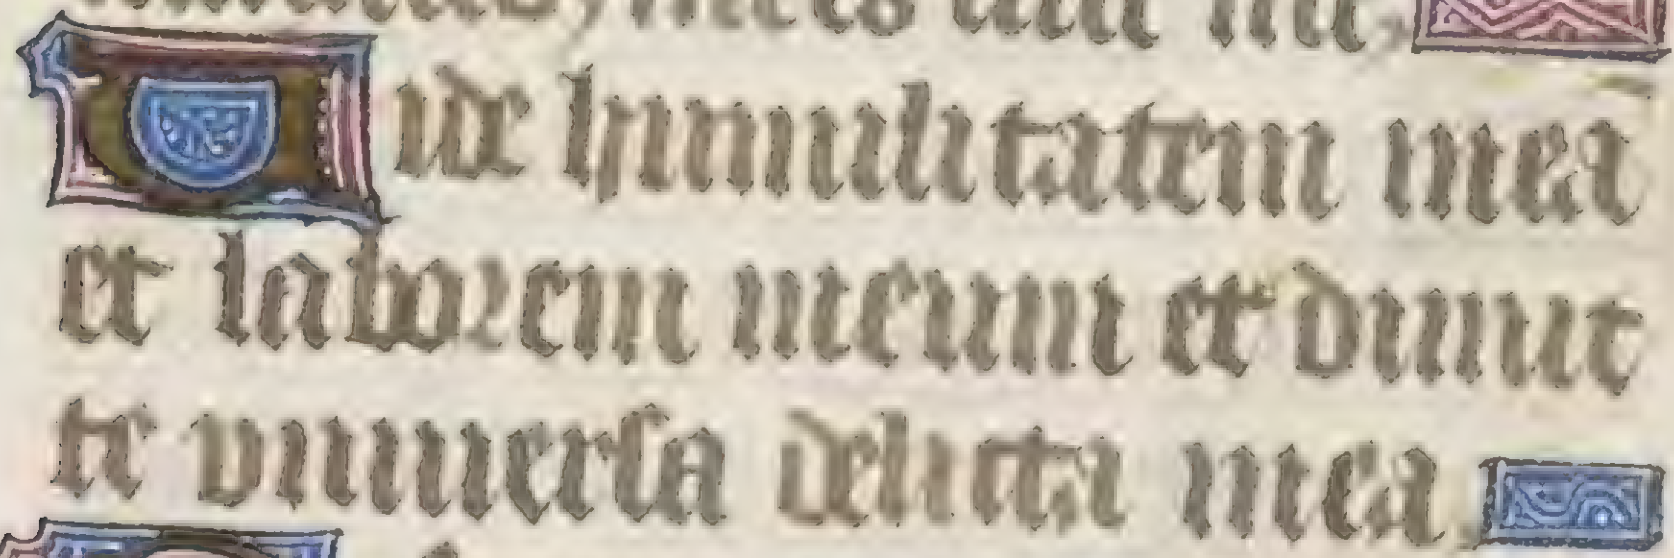 Vide humilitatem mea
et laborem meum et dimit
te vniuersa delicta mea.